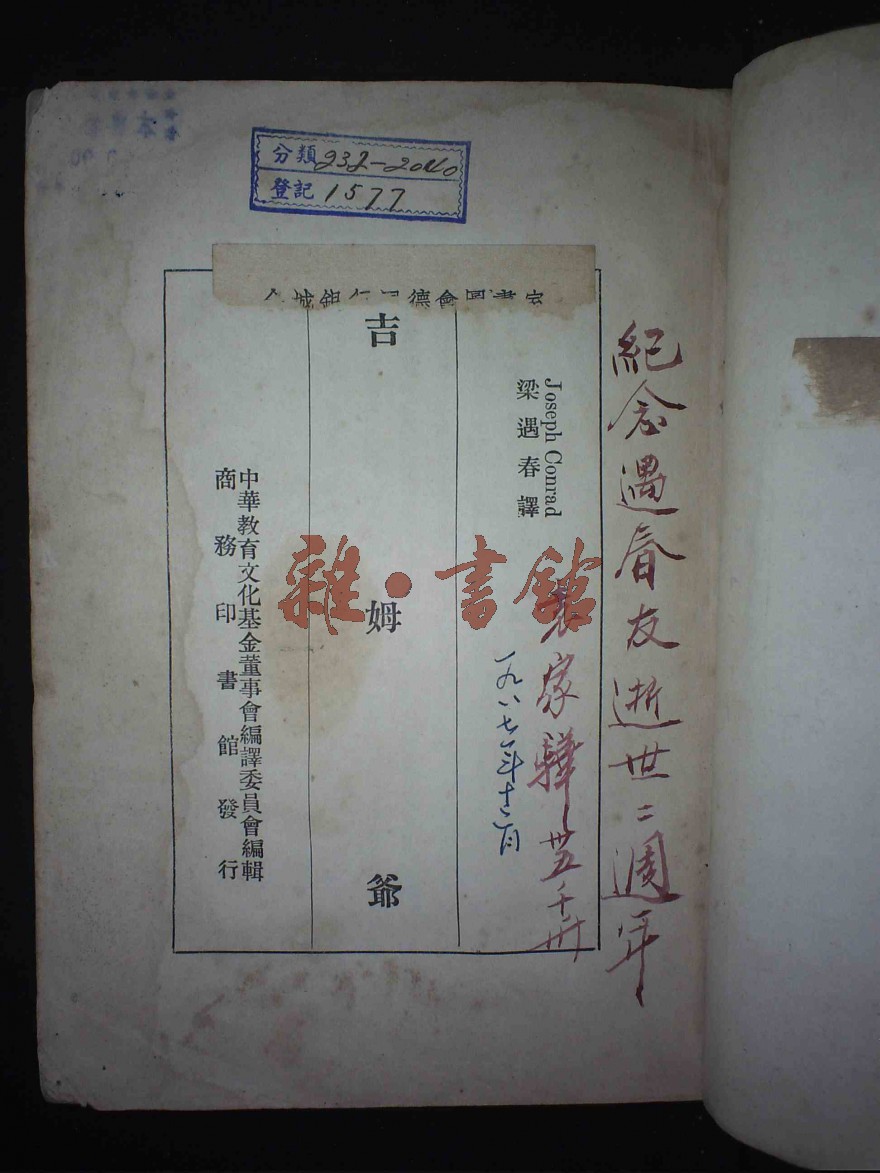 分類 232-2040
登記 1577
紀念遇春友逝世二週年
袁家驊
一九八七年十二月
Joseph Conrad
梁遇春譯
吉姆爺
中華教育文化基金董事會編譯委員會編輯
商務印書館發行
雜·書館